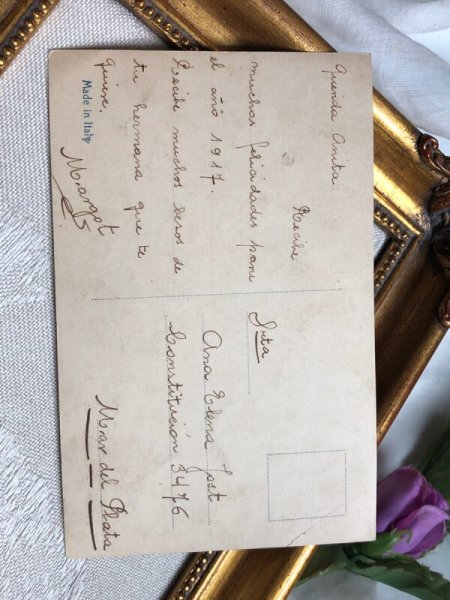 Querida Anita:
Recibe
muchas felicidades para
el año 1917.
Recibe muchos besos de
tu hermana que te
quiere.
Margot
Made in Italy
Srta
Ana Elena Jost
Constitución 3476
Mar del Plata